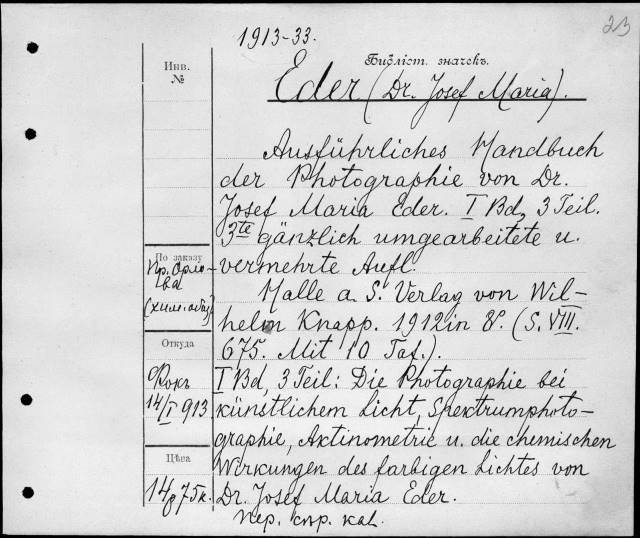 1913-33.
23
Инв.
№
Библіот. значекъ.
Eder (Dr. Josef Maria).
Ausführliches Handbuch
der Photographie von Dr.
Josef Maria Eder. I Bd, 3 Teil.
3te gänzlich umgearbeitete u.
vermehrte Aufl.
Halle a. S. Verlag von Wil-
helm Knapp. 1912 in 8°. (S. VIII.
675. Mit 10 Taf.).
I Bd, 3 Teil: Die Photographie bei
künstlichem Licht, Spektrumphoto-
graphie, Aktinometrie u. die chemischen
Wirkungen des farbigen Lichtes von
Dr. Josef Maria Eder.
По заказу
Пр. Орло-
ва
Откуда
14/I 913
Цѣна
14р 75к.